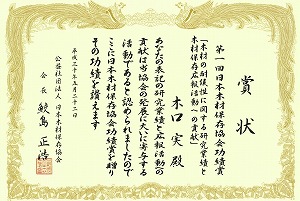 賞状
第一回日本木材保存協会功績賞
「木材の耐候性に関する研究業績と
木材保存広報活動への貢献」
木口 実 殿
あなたの表記の研究業績と広報活動の
貢献は当協会の発展に大いに寄与する
活動であると認められましたので
ここに日本木材保存協会功績賞を贈り
その功績を讃えます
平成二十五年五月二十二日
公益社団法人 日本木材保存協会
会長 鮫島 正浩